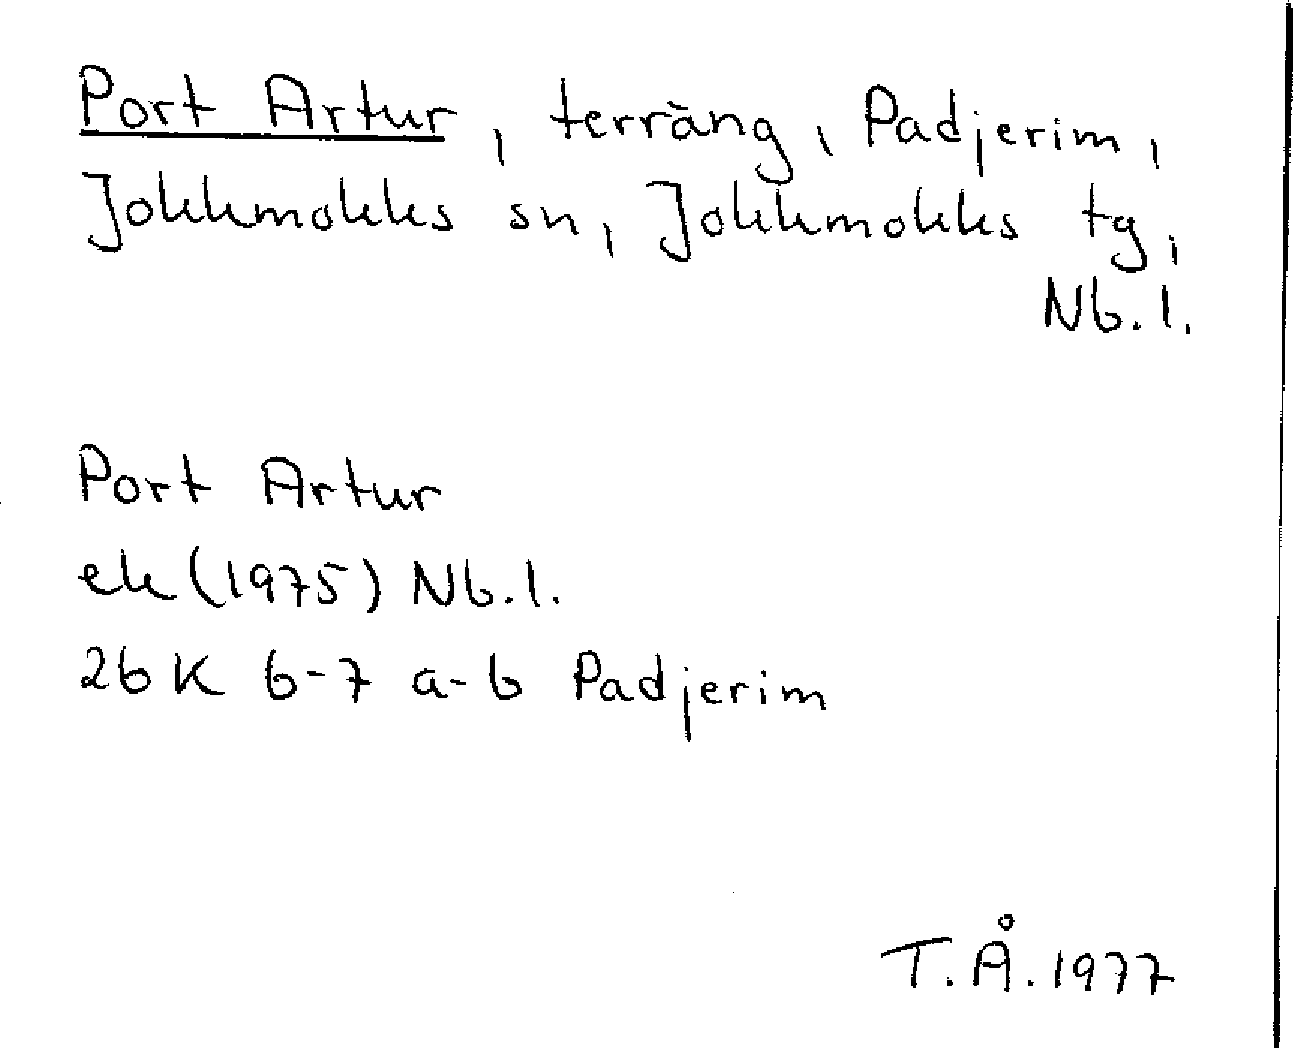 Port Artur, terräng, Padjerim,
Jokkmokks sn, Jokkmokks tg,
Nb. l.
Port Artur
ek (1975) Nb. l.
26 K 6-7 a-b Padjerim
T. Å. 1977